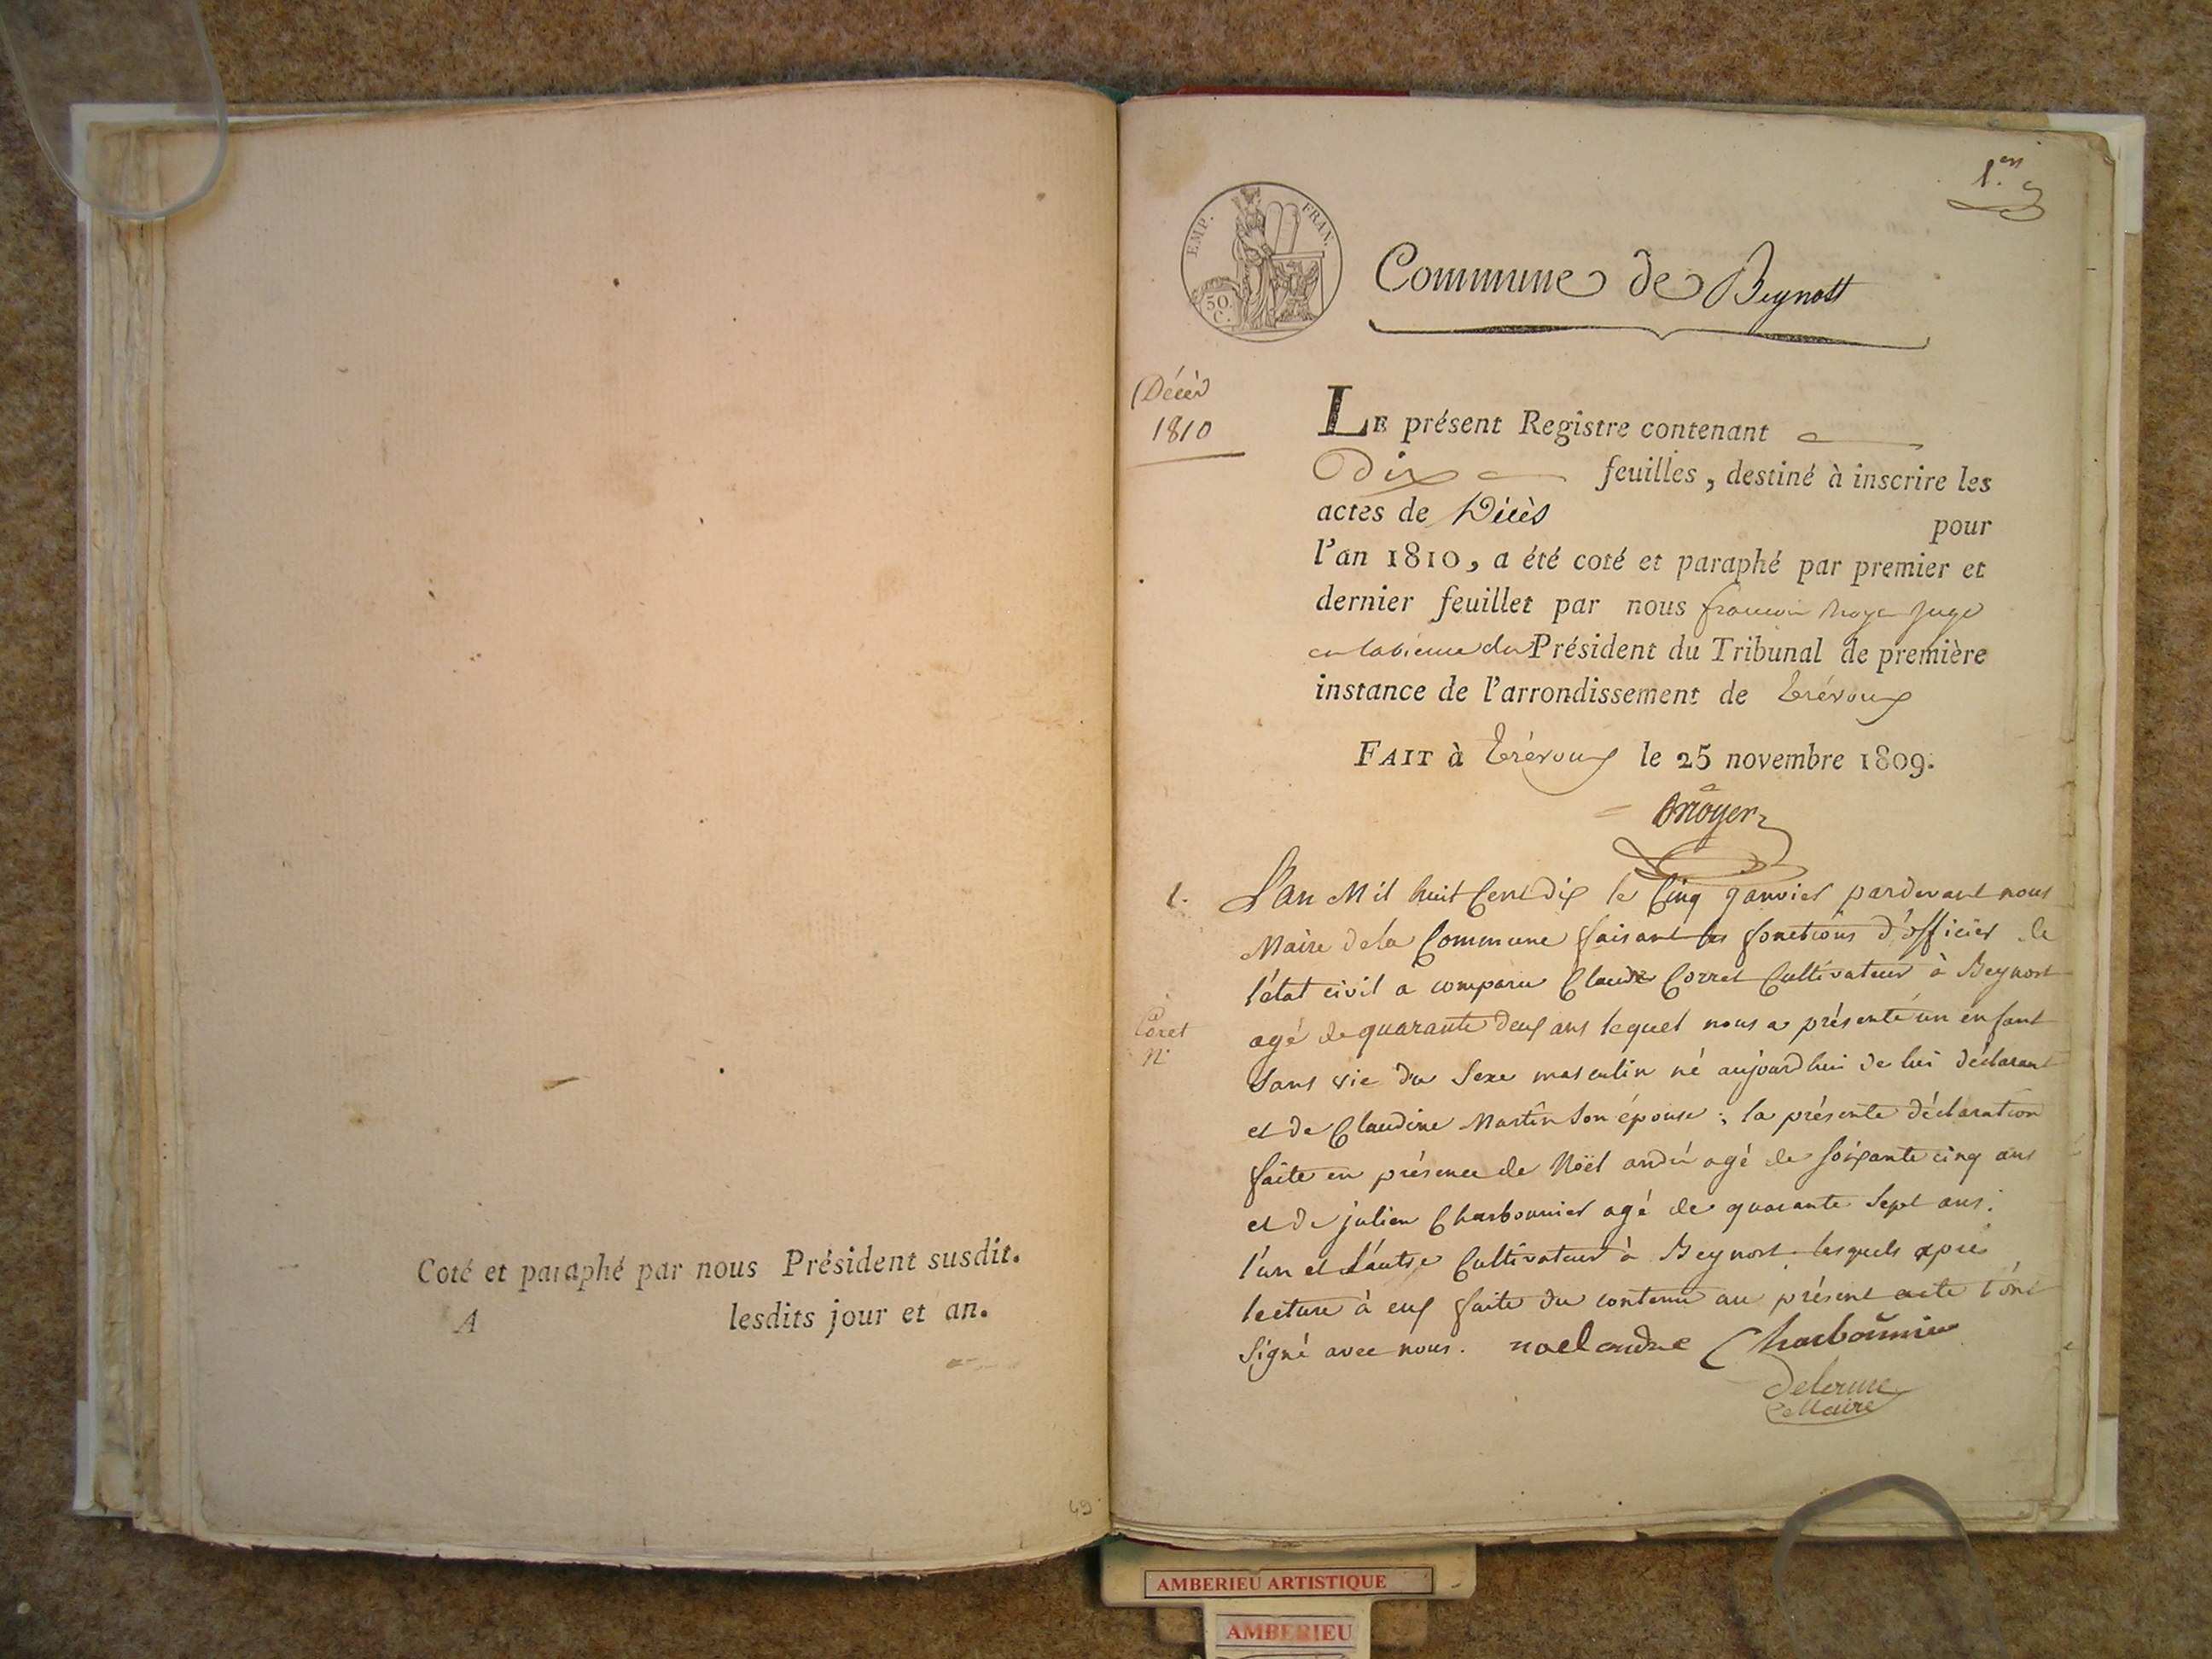 Coté et paraphé par nous Président susdit.
A lesdits jour et an.
49
1.er
EMP. FRAN.
50
C.
Commune de Beynost
Décès
1810
LE présent Registre contenant
Dix feuilles, destiné à inscrire les
actes de Décès pour
l'an 1810, a été coté et paraphé par premier et
dernier feuillet par nous françois Moyer Juge
en labsence du Président du Tribunal de première
instance de l'arrondissement de Trévoux
FAIT à Trévoux le 25 novembre 1809.
Moyer
1.
L'an Mil huit Cent Dix le Cinq Janvier pardevant nous
Maire de la Commune faisant les fonctions d'officier de
l'état civil a comparu Claude Corret Cultivateur à Beynost
Coret
N.
agé de quarante deux ans lequel nous a présenté un enfant
sans vie du sexe masculin né aujourdhui de lui déclarant
et de Claudine Martin son épouse ; la présente déclaration
faite en présence de Noël andré agé de soixante cinq ans
et de julien Charbonnier agé de quarante sept ans :
l'un et l'autre Cultivateur à Beynost lesquels après
lecture à eux faite du contenu au présent acte l'ont
signé avec nous. noel andre Charbonnier
Le Maire
AMBERIEU ARTISTIQUE
AMBERIEU